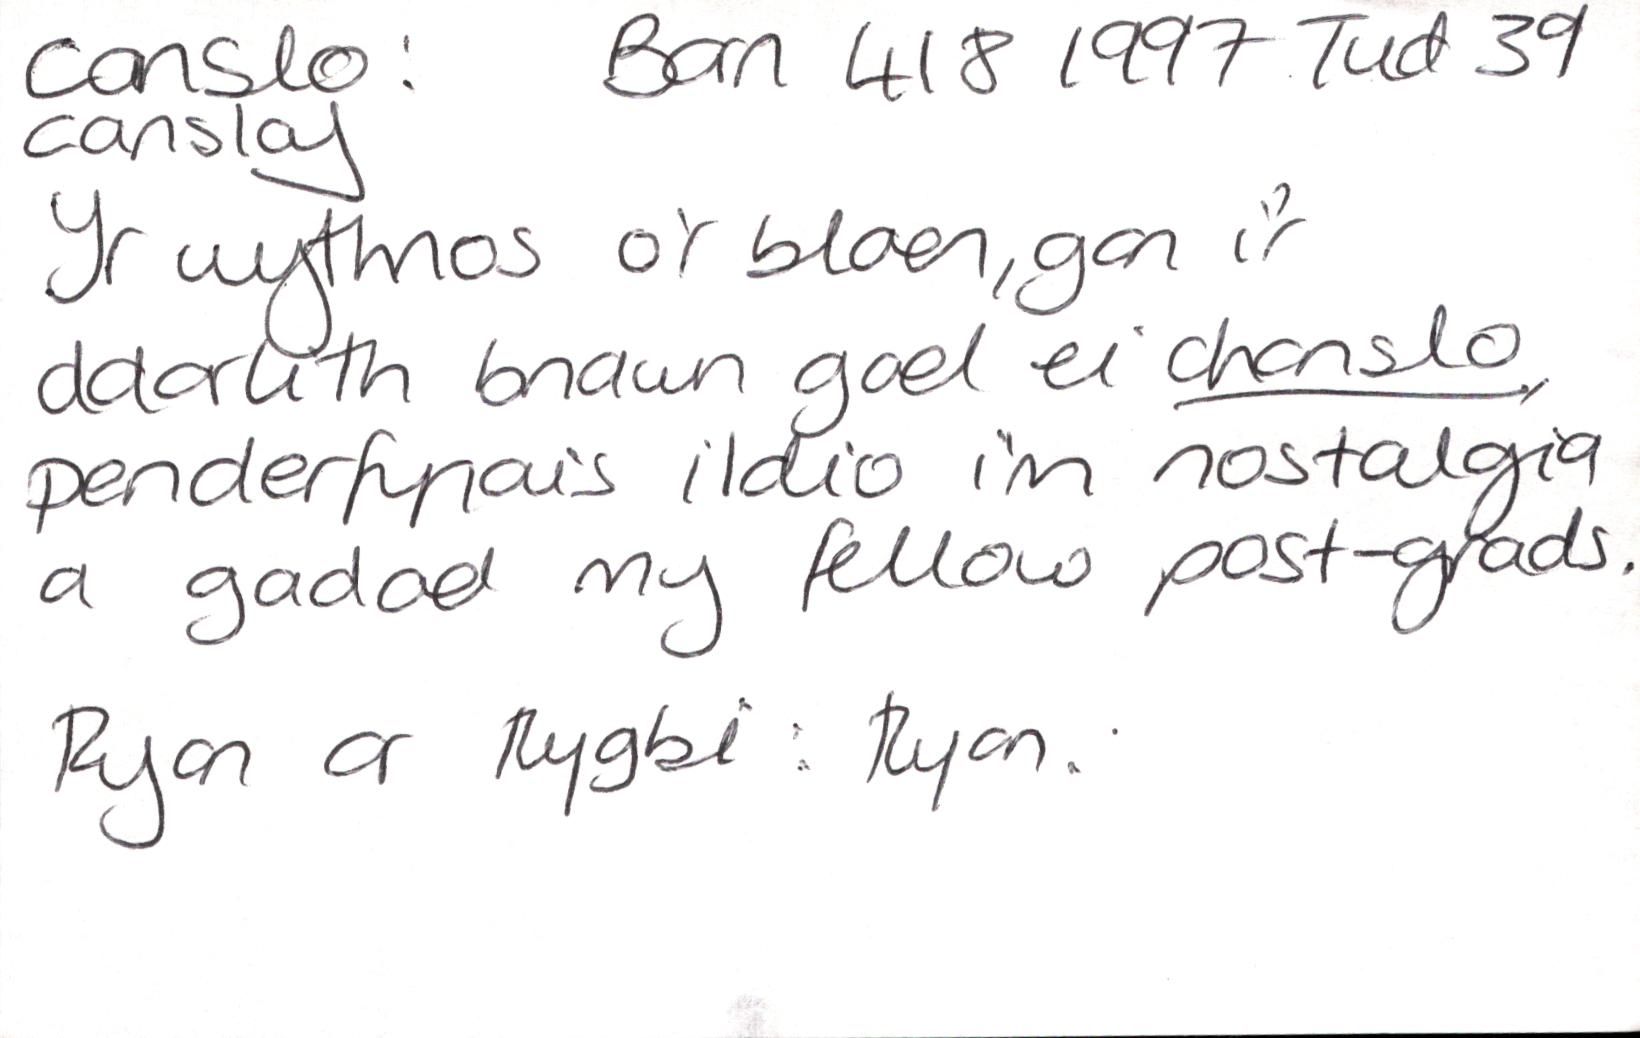 canslo: Barn 418 1997 Tud 39
canslaf
Yr wythnos o'r blaen, gan i'r
ddarlith bnawn gael ei chanslo,
penderfynais ildio i'm nostalgia
a gadael my fellow post-grads.
Ryan a Rygbi: Ryan.